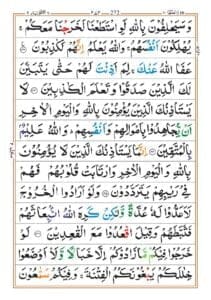 وَسَيَحْلِفُوْنَ بِاللّٰهِ لَوِ اسْتَطَعْنَا لَخَرَجْنَا مَعَكُمْ ۚ
يُهْلِكُوْنَ اَنْفُسَهُمْ ۚ وَاللّٰهُ يَعْلَمُ اِنَّهُمْ لَكٰذِبُوْنَ
عَفَا اللّٰهُ عَنْكَ ۚ لِمَ اَذِنْتَ لَهُمْ حَتّٰى يَتَبَيَّنَ
لَكَ الَّذِيْنَ صَدَقُوْا وَتَعْلَمَ الْكٰذِبِيْنَ لَا
يَسْتَاْذِنُكَ الَّذِيْنَ يُؤْمِنُوْنَ بِاللّٰهِ وَالْيَوْمِ الْاٰخِرِ
اَنْ يُّجَاهِدُوْا بِاَمْوَالِهِمْ وَاَنْفُسِهِمْ ؕ وَاللّٰهُ عَلِيْمٌۢ
بِالْمُتَّقِيْنَ اِنَّمَا يَسْتَاْذِنُكَ الَّذِيْنَ لَا يُؤْمِنُوْنَ
بِاللّٰهِ وَالْيَوْمِ الْاٰخِرِ وَارْتَابَتْ قُلُوْبُهُمْ فَهُمْ
فِيْ رَيْبِهِمْ يَتَرَدَّدُوْنَ وَلَوْ اَرَادُوا الْخُرُوْجَ
لَاَعَدُّوْا لَهٗ عُدَّةً وَّلٰكِنْ كَرِهَ اللّٰهُ انْۢبِعَاثَهُمْ
فَثَبَّطَهُمْ وَقِيْلَ اقْعُدُوْا مَعَ الْقٰعِدِيْنَ لَوْ
خَرَجُوْا فِيْكُمْ مَّا زَادُوْكُمْ اِلَّا خَبَالًا وَّلَا۟اَوْضَعُوْا
خِلٰلَكُمْ يَبْغُوْنَكُمُ الْفِتْنَةَ ۚ وَفِيْكُمْ سَمّٰعُوْنَ